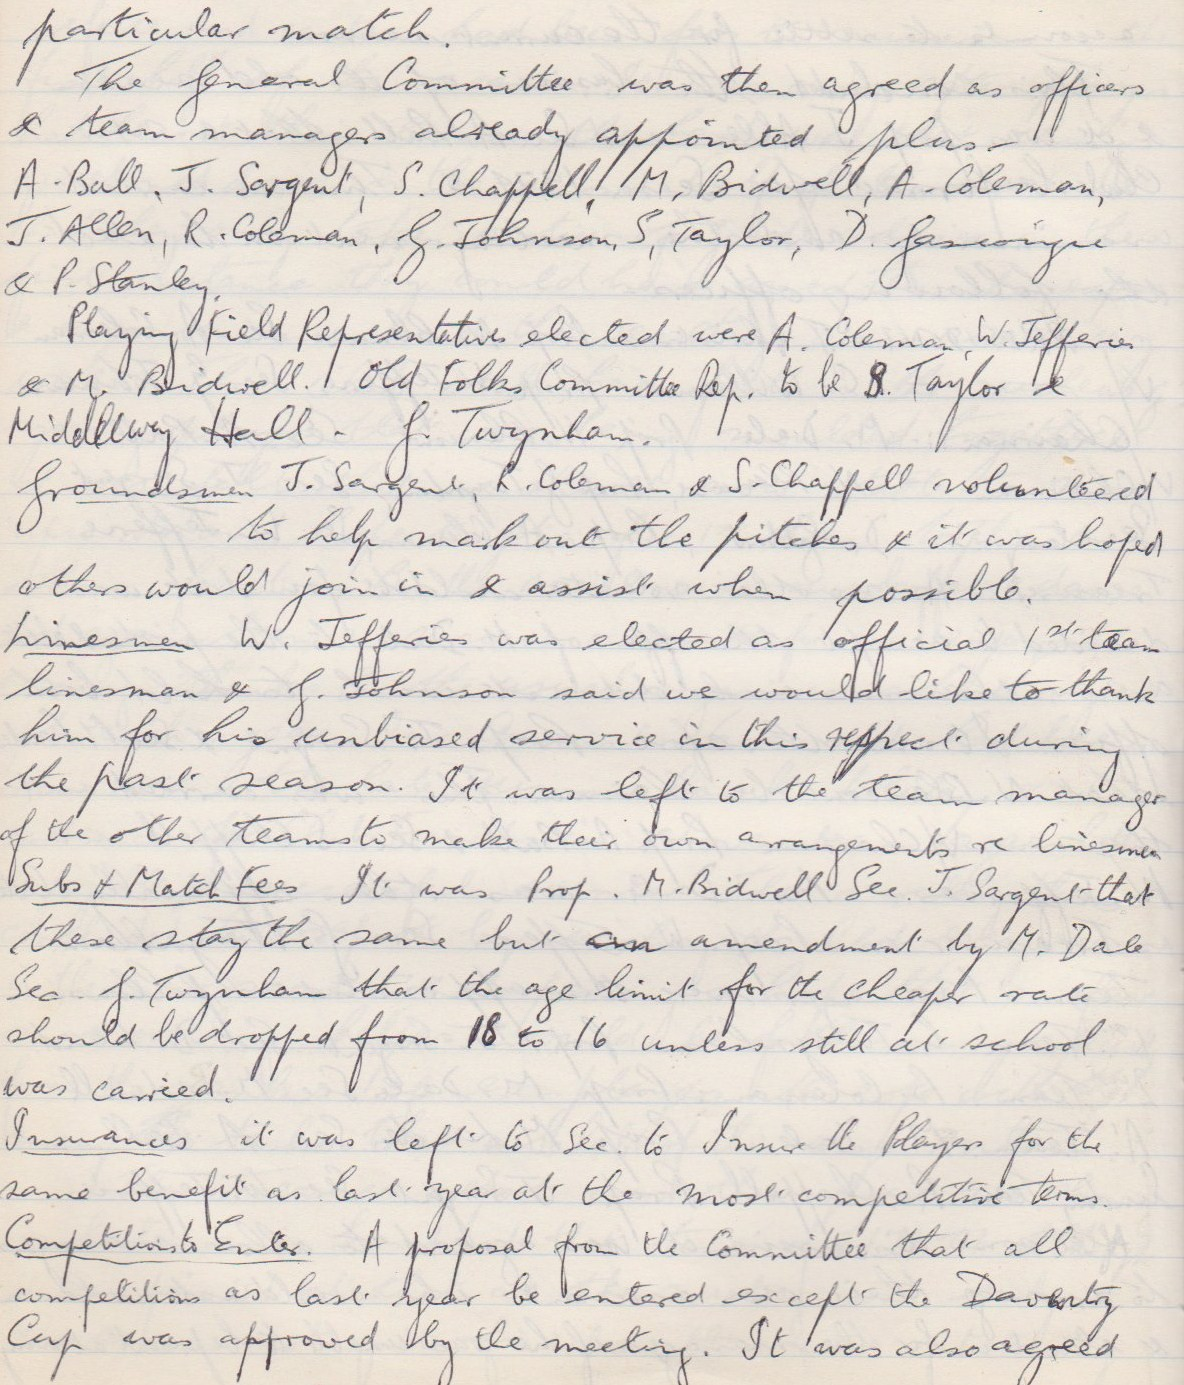 particular match.
The General Committee was then agreed as officers
& team managers already appointed plus-
A. Ball, J. Sargent, S. Chappell, M. Bidwell, A. Coleman,
J. Allen, R. Coleman, G. Johnson, S, Taylor, D. Gascoigne
& P. Stanley.
Playing Field Representatives elected were A. Coleman, W. Jefferies
& M. Bidwell. Old Folks Committee Rep. to be S. Taylor &
Middlluey Hall - G. Twynham.
Groundsmen J. Sargent, R. Coleman & S. Chappell volunteered
to help mark out the pitches & it was hoped
others would join in & assist when possible.
Linesmen W. Jefferies was elected as official 1st team
linesman & G. Johnson said we would like to thank
him for his unbiased service in this respect during
the past season. It was left to the team manager
of the other teams to make their own arrangements re linesmen
Subs & Match Fees It was Prop. M. Bidwell Sec. J. Sargent that
these stay the same but an amendment by M. Dale
Sec. G. Twynham that the age limit for the cheaper rate
should be dropped from 18 to 16 unless still at school
was carried.
Insurances it was left to Sec. to Insure the Players for the
same benefit as last year at the most competitive terms.
Competitions to Enter. A proposal from the Committee that all
competitions as last year be entered except the Daventry
Cup was approved by the meeting. It was also agreed